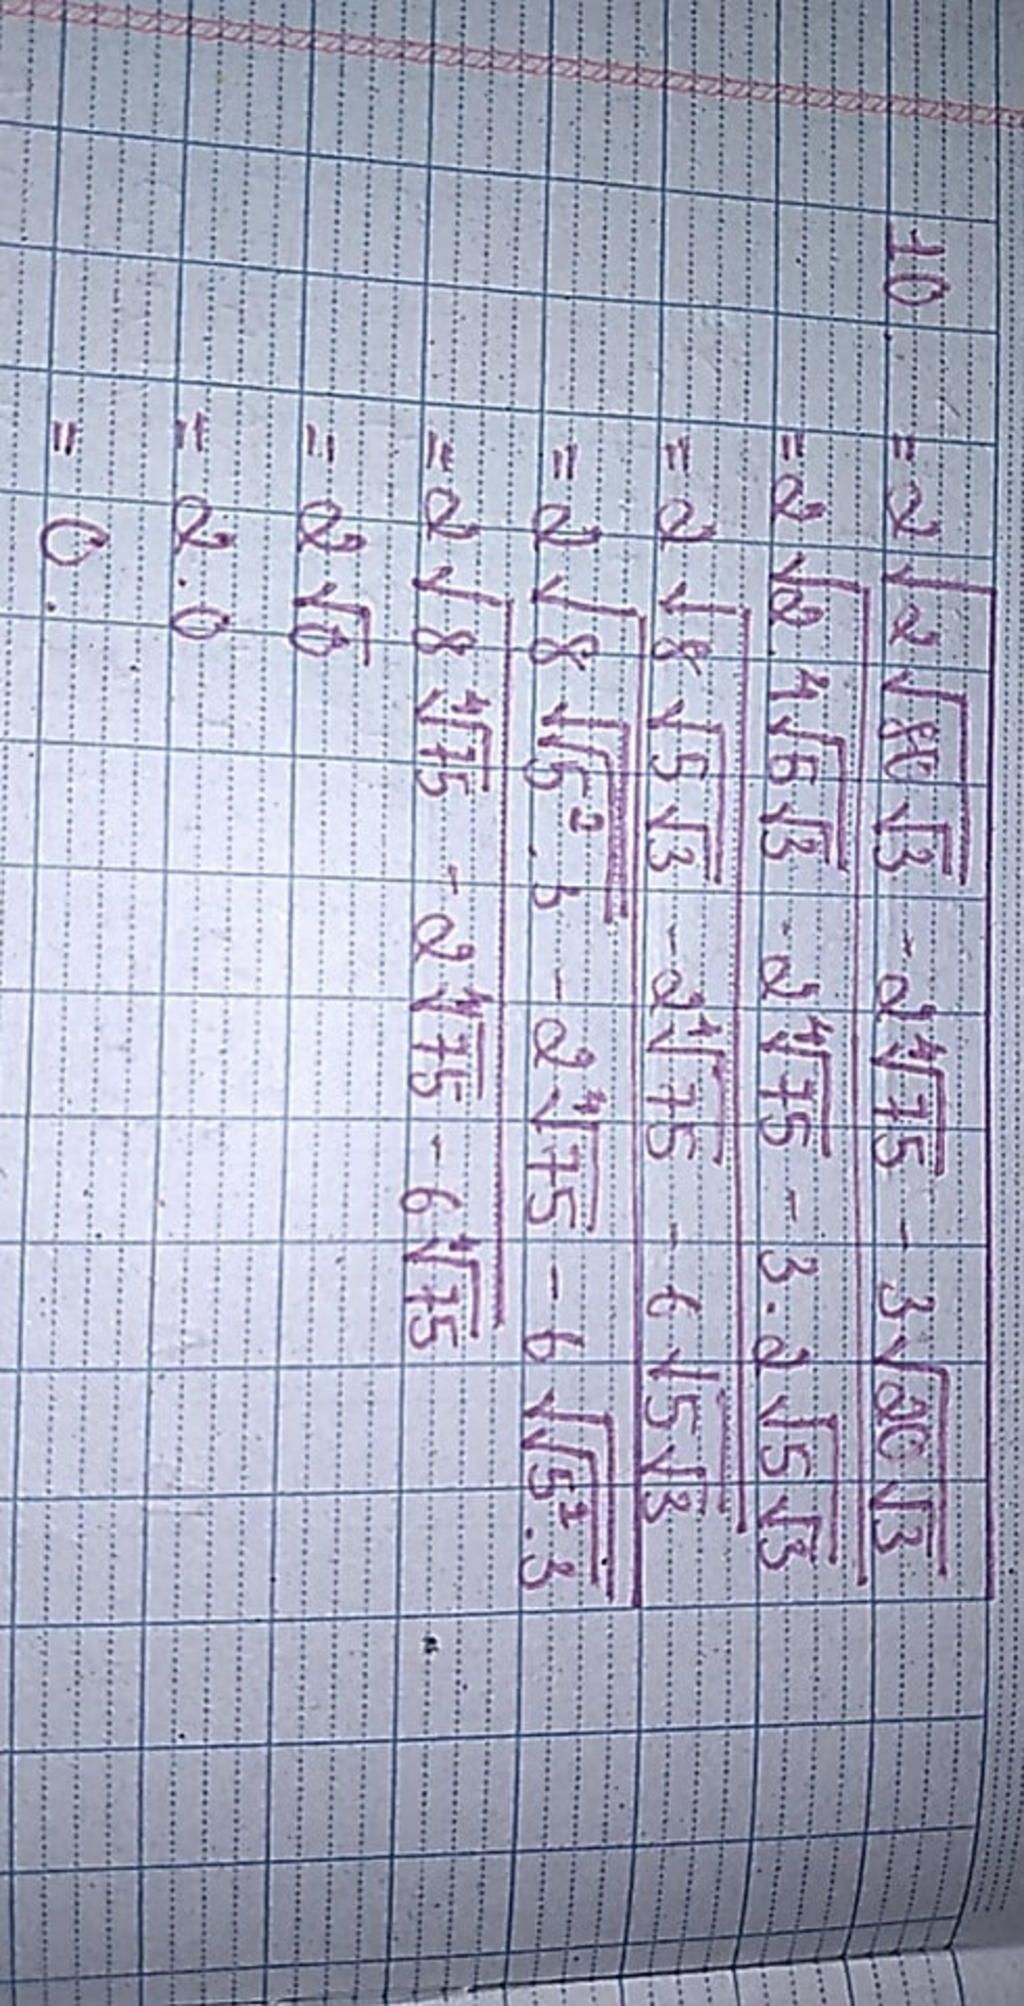 10. = 2√(2√(80√3) - 2⁴√75 - 3√(20√3))
= 2√(2.4√(5√3) - 2⁴√75 - 3.2√(5√3))
= 2√(8√(5√3) - 2⁴√75 - 6√(5√3))
= 2√(8√√(5².3) - 2⁴√75 - 6√√(5².3))
= 2√(8⁴√75 - 2⁴√75 - 6⁴√75)
= 2√0
= 2.0
= 0.